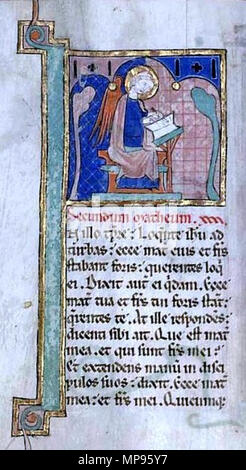 Secundum matheum. xxx
In illo tpre: Loqnte ihu ad
turbas: ecce mat eius et frs
stabant foris: querentes loq
ei. Dixit aut ei qdam. Ecce
mat tua et frs tui foris stant:
querentes te. At ille respondes
dicenti sibi ait. Que est mat
mea. et qui sunt frs mei:
Et extendens manu in disci
pulos suos: dixit. Ecce mat
mea: et frs mei. Quicunq
alamy
MP95Y7